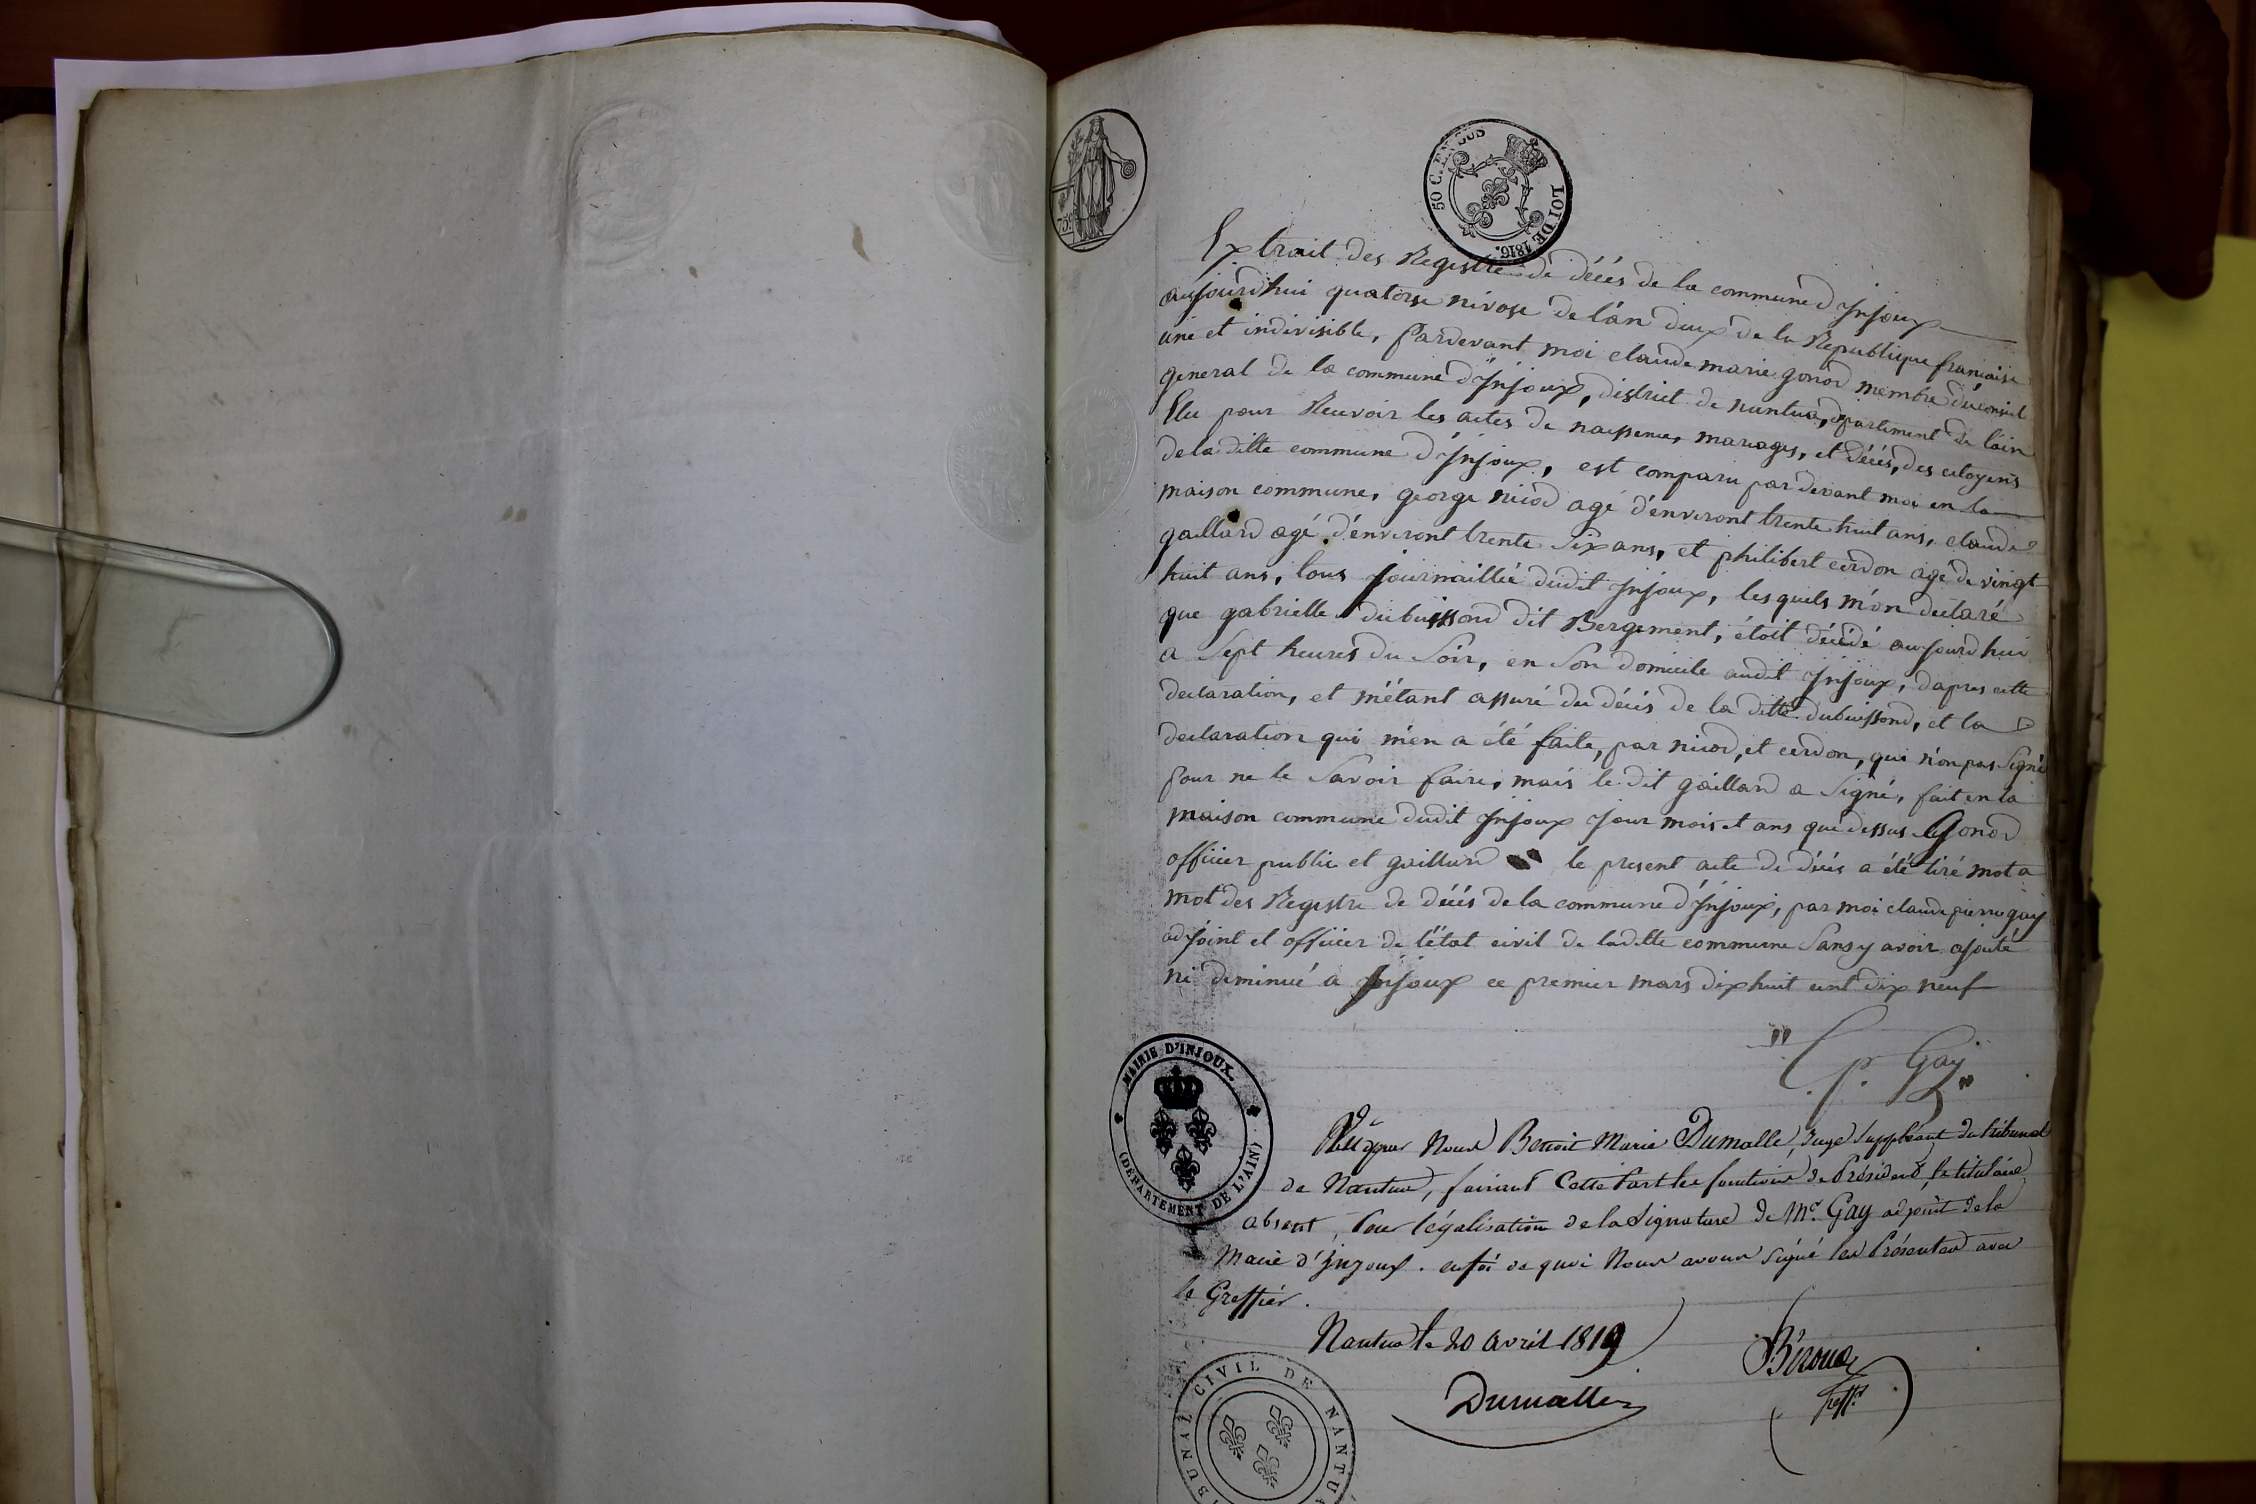 75c
50 CEN SUS
LOI DE 1816.
Extrait des Registre de décés de la commune d'Injoux
aujourd'hui quatorse nivose de lán deux de la Republique francaise
une et indivisible, pardevant moi claude marie gonod membre du conseil
general de la commune d'Injoux, district de nantua, département de láin
Elu pour Recevoir les actes de naissence, mariages, et décés, des citoyens
de la ditte commune d'Injoux, est comparu par devant moi en la
maison commune, george nicod agé d'environt trente huit ans, claude
gaillard agé d'environt trente six ans, et philibert cerdon agé de vingt
huit ans, tous journaillié dudit Injoux, lesquels m'on déclaré
que gabrielle dubuissond dit Bergement, étoit décédé aujourd'hui
a sept heures du soir, en son domicile audit Injoux, dapres cette
declaration, et m'étant assuré du décés de la ditte dubuissond, et la
declaration qui m'en a été faite, par nicod, et cerdon, qui n'on pas signé
pour ne le savoir faire, mais le dit gaillard a signé, fait en la
maison commune dudit Injoux jour mois et ans que dessus Gonod
officier public et gaillard le present acte de décés a été tiré mot a
mot des Registre de décés de la commune d'Injoux, par moi claude pierre gay
adjoint et officier de l'état civil de laditte commune sans y avoir ajouté
ni diminué a Injoux ce premier mars dix huit cent dix neuf
C. p. Gay
MAIRIE D'INJOUX
(DÉPARTEMENT DE L'AIN)
Vu par Nous Benoit Marie Dumalle, Juge suppléant du tribunal
de Nantua, faisant Cette Part les fonctions de Président, le titulaire
absent, Pour légalisation de la Signature de Mr. Gay adjoint de la
Mairie d'Injoux. en foi de quoi Nous avons signé les Présentes avec
le Greffier.
Nantua le 20 avril 1819
Dumalle
greff.
TRIBUNAL CIVIL DE NANTUA